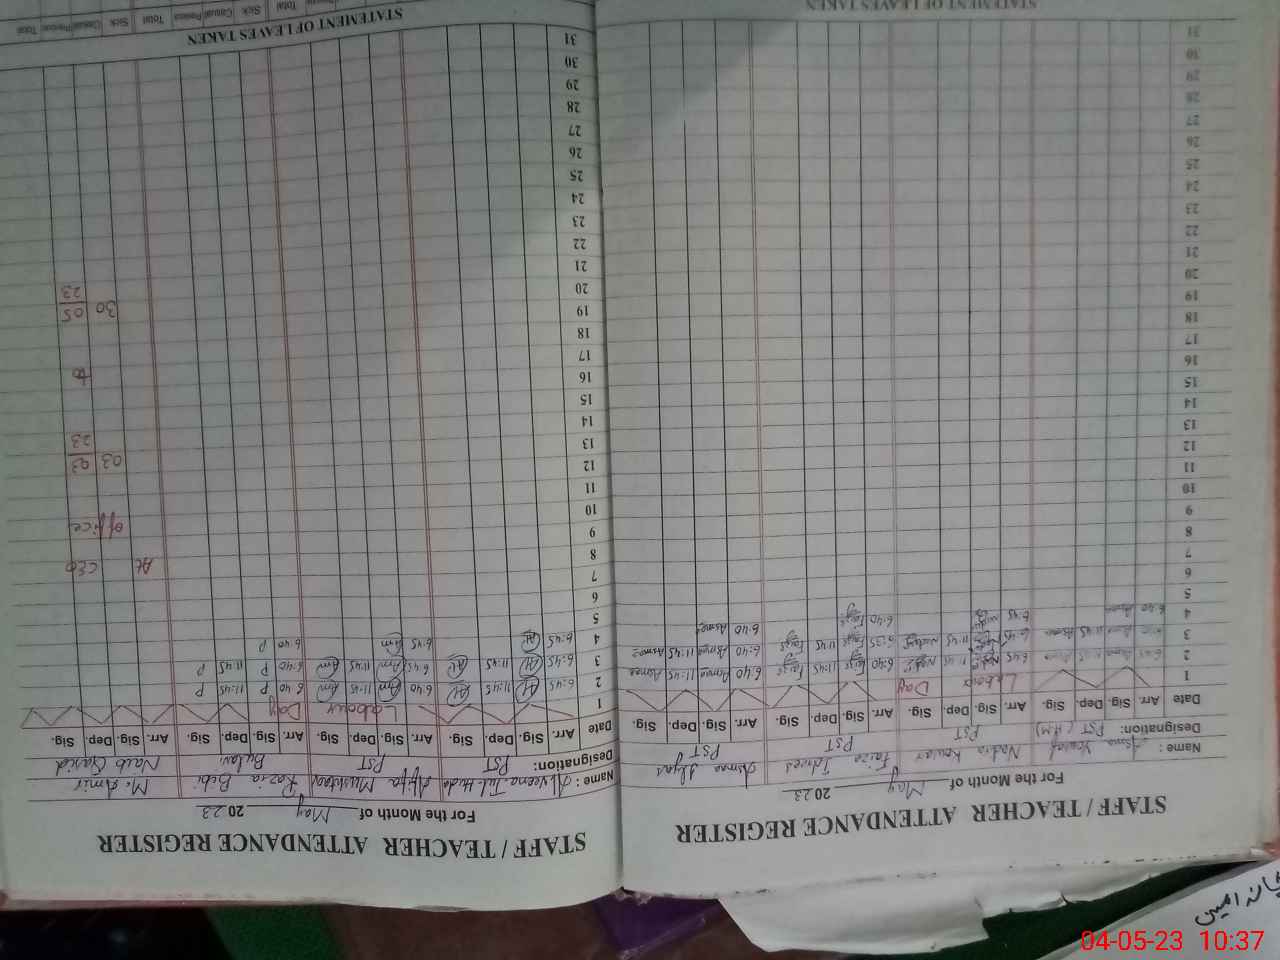 STAFF / TEACHER ATTENDANCE REGISTER
For the Month of May 2023
Name: Asma Yousaf Nadia Kousar Faiza Idrees Asma Ilyas
Designation: PST (H.M) PST PST PST
Date Arr. Sig. Dep. Sig. Arr. Sig. Dep. Sig. Arr. Sig. Dep. Sig. Arr. Sig. Dep. Sig.
1 Labour Day
2 6:45 Asma 11:45 Asma 6:45 11:45 6:40 Faiza 11:45 Faiza 6:40 Asma 11:45 Asma
3 Asma 11:45 Asma 6:45 11:45 6:35 Faiza 11:45 Faiza 6:40 Asma 11:45 Asma
4 6:40 Asma 6:45 6:40 Faiza 6:40 Asma
5
6
7
8
9
10
11
12
13
14
15
16
17
18
19
20
21
22
23
24
25
26
27
28
29
30
31
STATEMENT OF LEAVES TAKEN
STAFF / TEACHER ATTENDANCE REGISTER
For the Month of May 2023
Name: Mushtaq Razia Bibi M. Amir
Designation: PST PST Naib Qasid
Date Arr. Sig. Dep. Sig. Arr. Sig. Dep. Sig. Arr. Sig. Dep. Sig. Arr. Sig. Dep. Sig.
1 Labour Day
2 6:45 11:45 6:40 11:45 6:40 P 11:45 P
3 6:45 11:45 6:45 11:45 6:40 P 11:45 P
4 6:45 6:45 6:40 P
5
6
7
8 At CEO
9 office
10
11
12 03 03
13 23
14
15
16 to
17
18
19 30 05
20 23
21
22
23
24
25
26
27
28
29
30
31
STATEMENT OF LEAVES TAKEN
Sick Casual Previous Total Sick Casual Previous Total
04-05-23 10:37